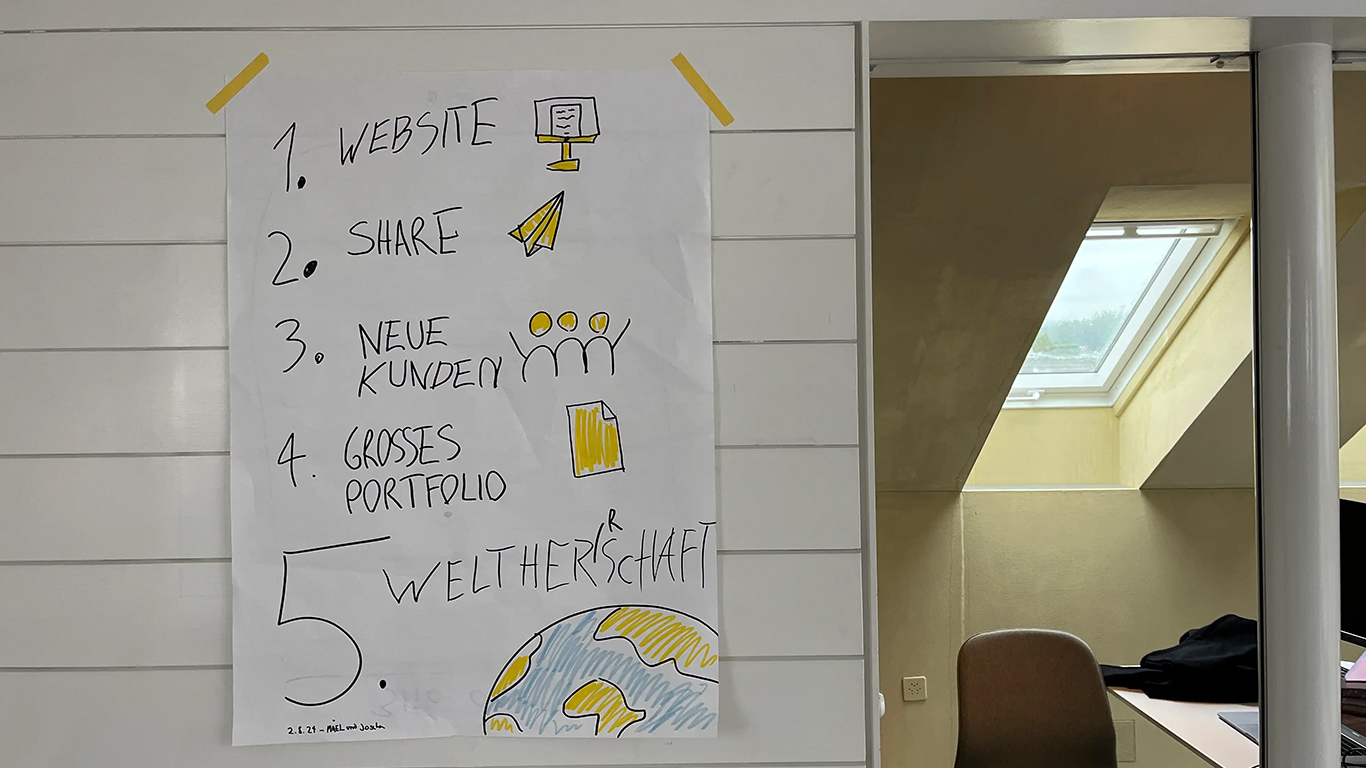 1. WEBSITE
2. SHARE
3. NEUE
KUNDEN
4. GROSSES
PORTFOLIO
5. WELTHERRSCHAFT
2.8.24 – MAEL und Joscha